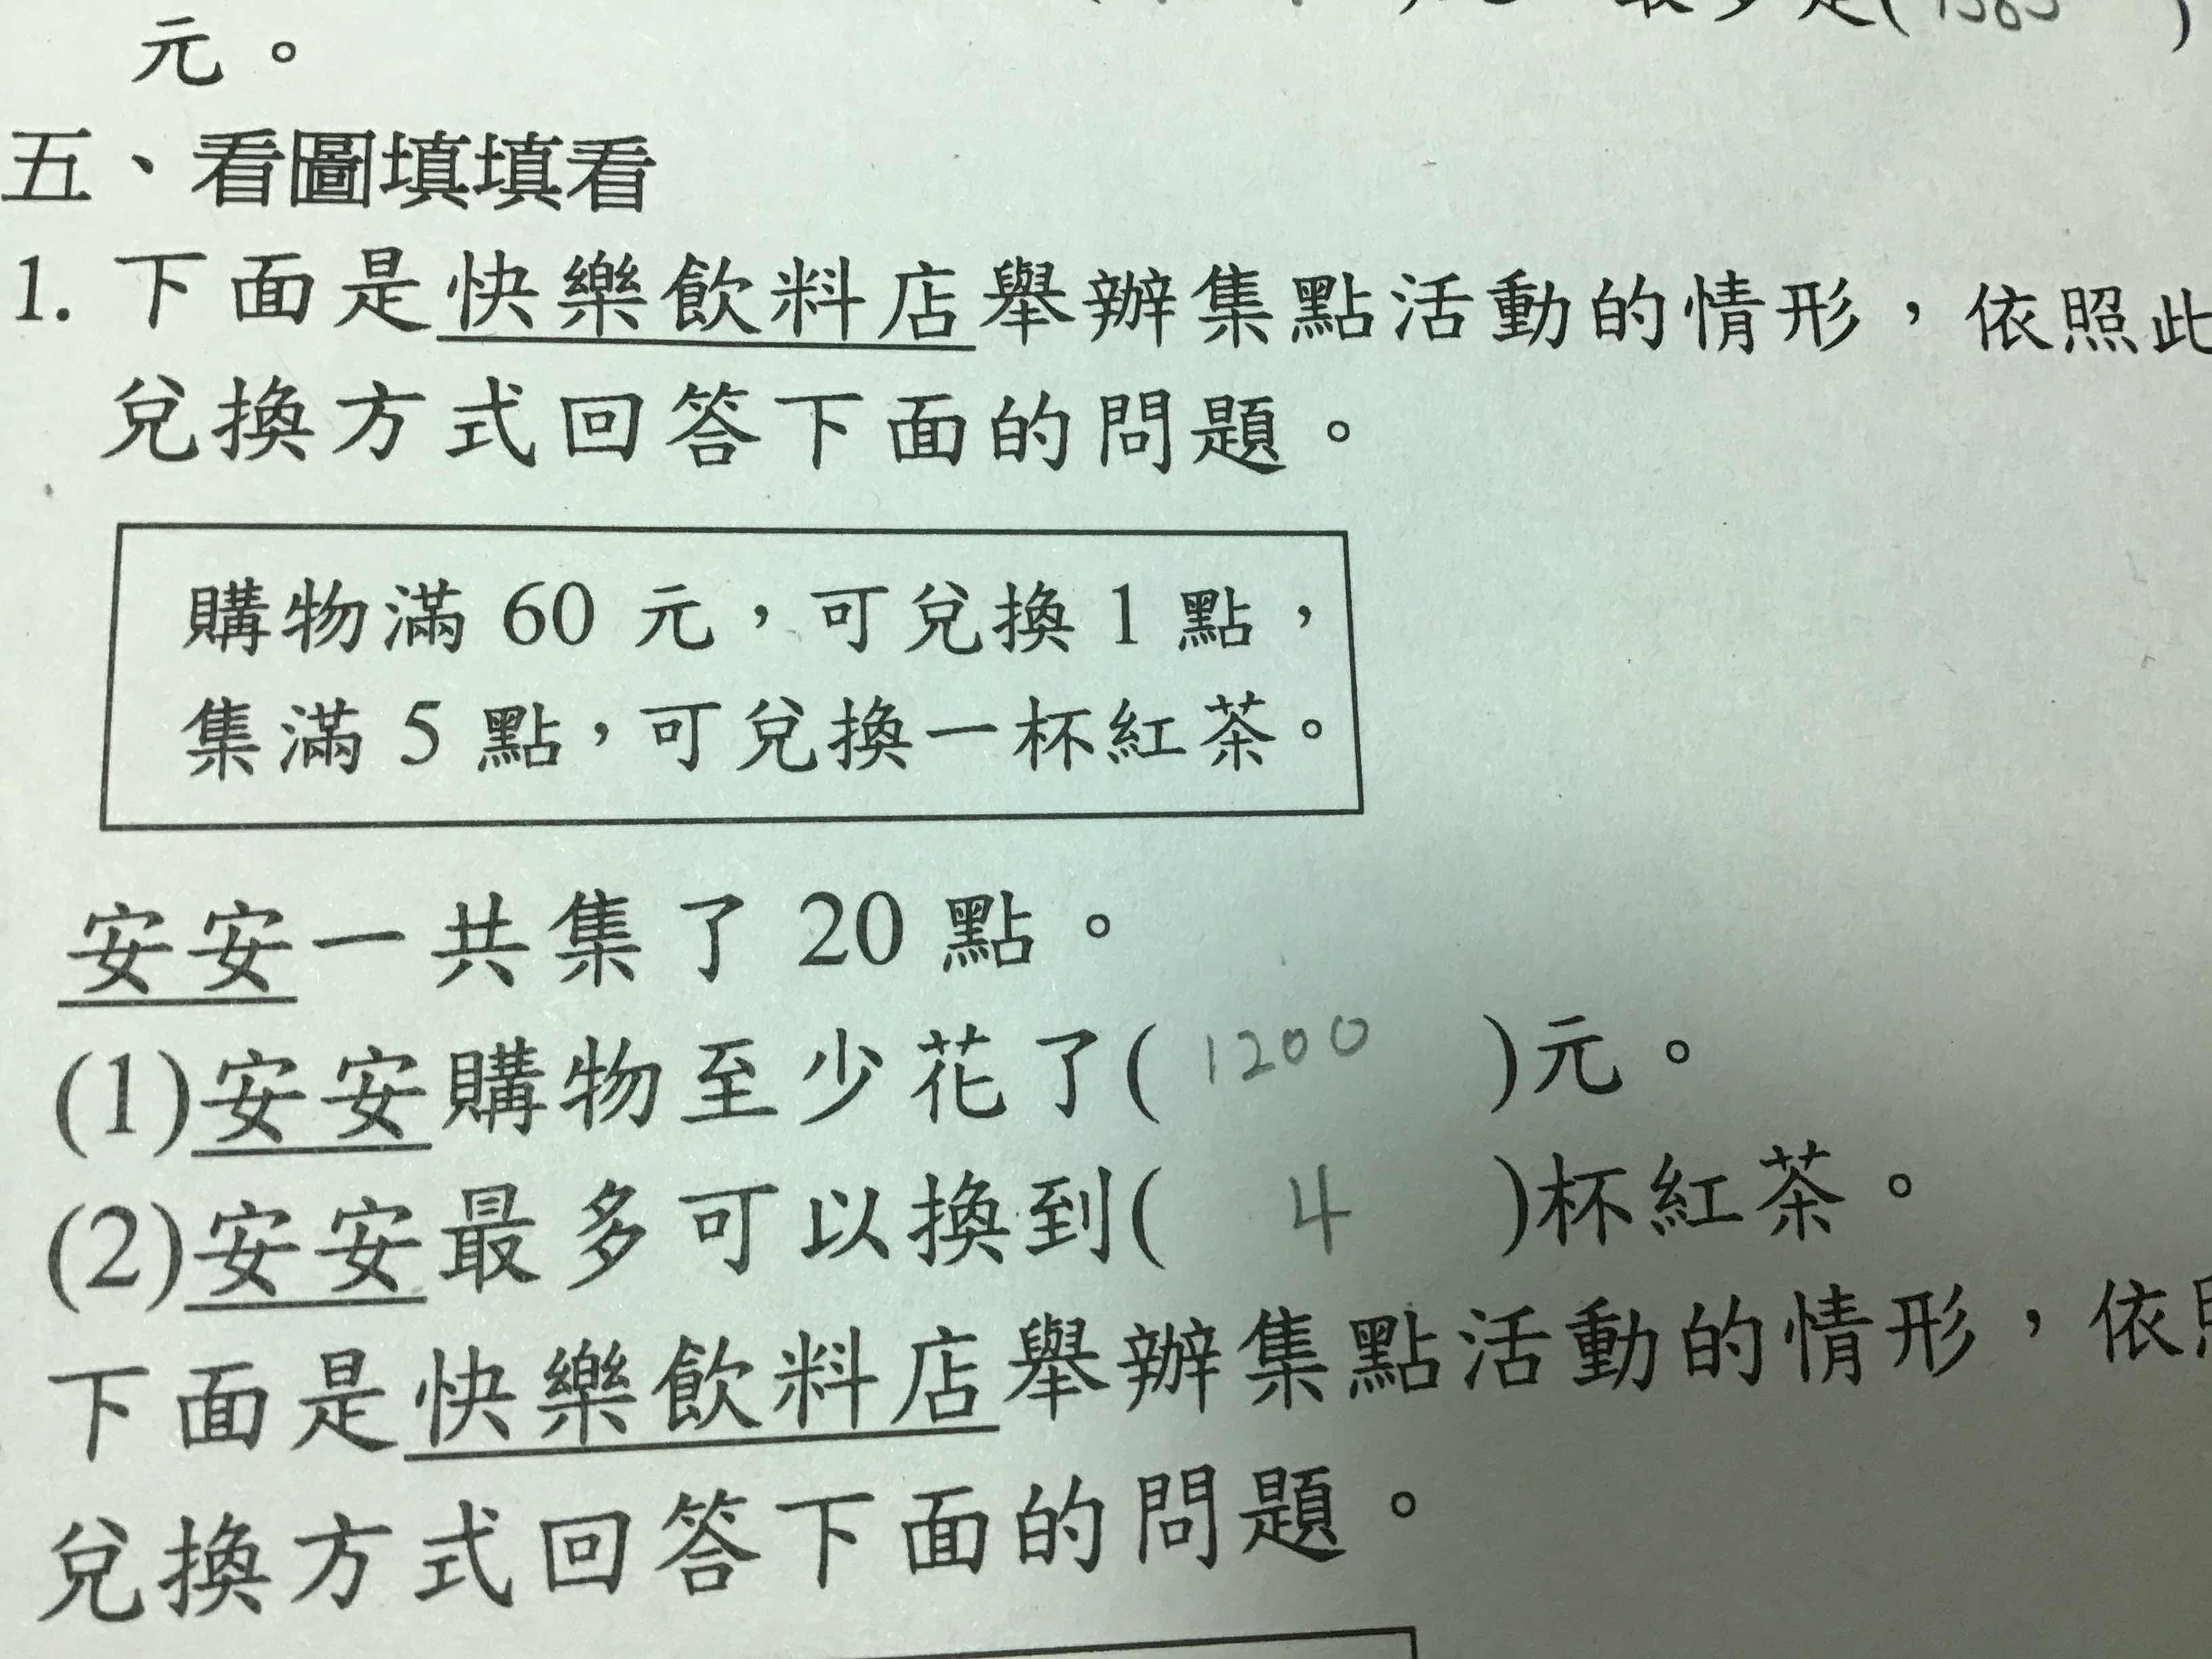 最多是(1585 )
元。
五、看圖填填看
1. 下面是快樂飲料店舉辦集點活動的情形，依照此
兌換方式回答下面的問題。
購物滿 60 元，可兌換 1 點，
集滿 5 點，可兌換一杯紅茶。
安安一共集了 20 點。
(1)安安購物至少花了( 1200 )元。
(2)安安最多可以換到( 4 )杯紅茶。
下面是快樂飲料店舉辦集點活動的情形，依照
兌換方式回答下面的問題。